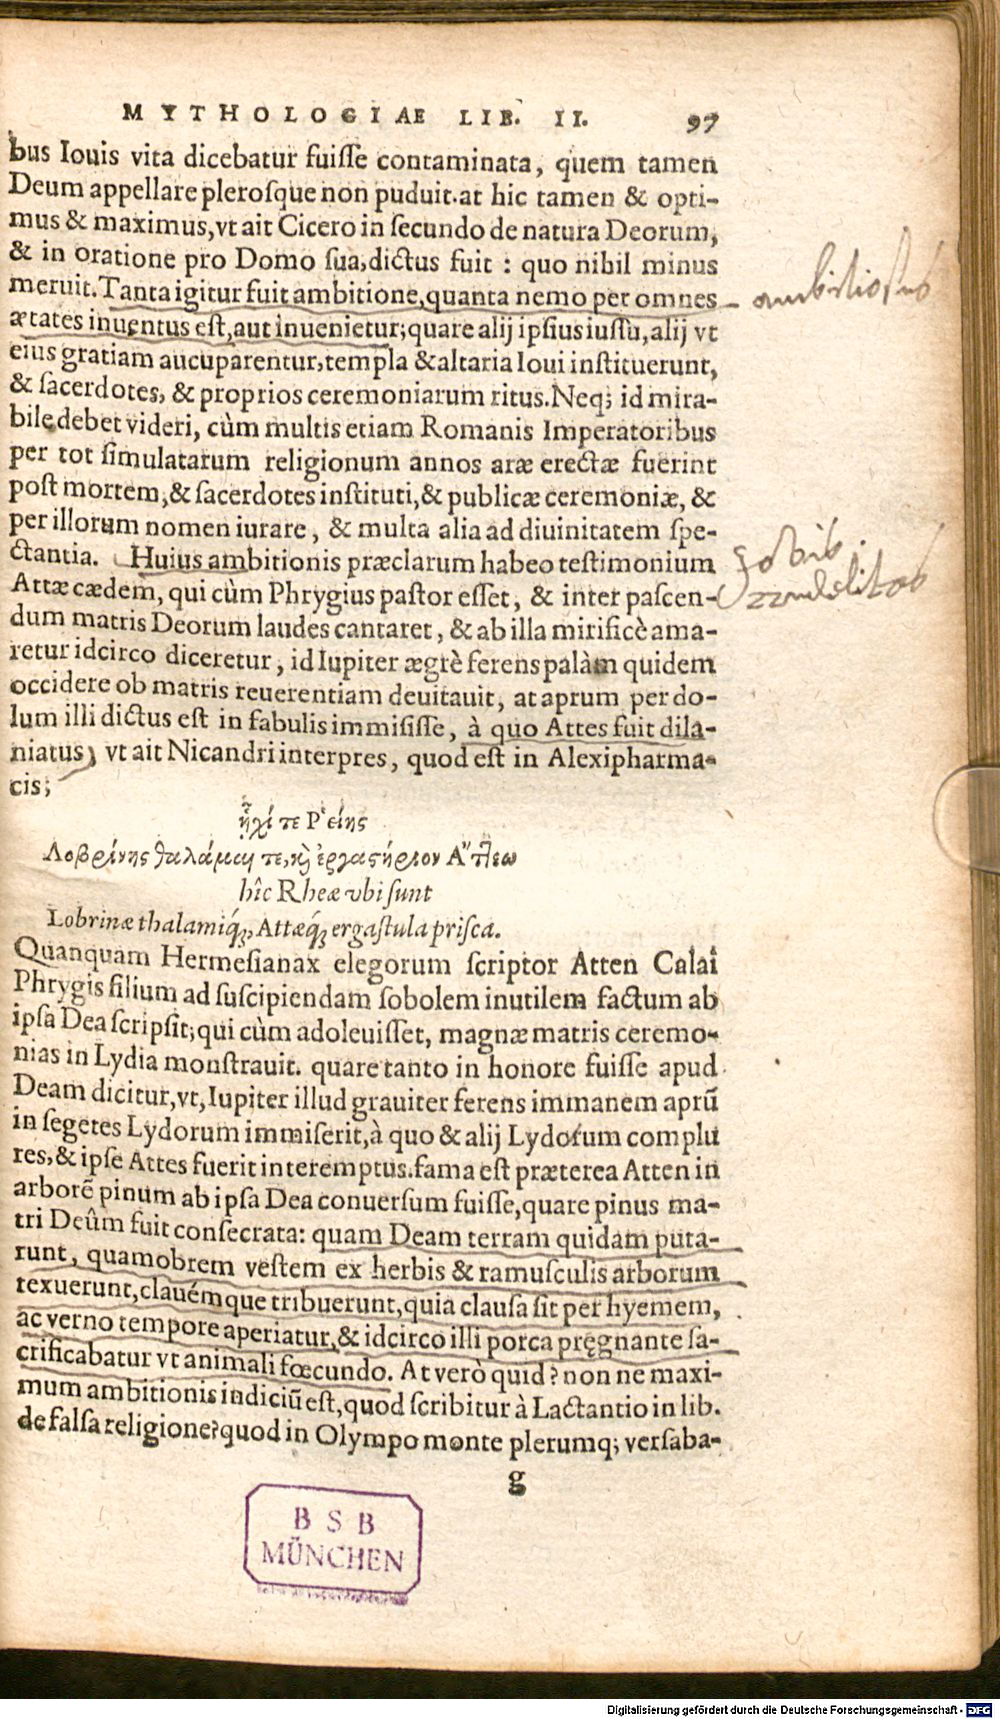 MYTHOLOGIAE LIB. II. 97
bus Iouis vita dicebatur fuiſſe contaminata, quem tamen
Deum appellare pleroſque non puduit. at hic tamen & opti-
mus & maximus, vt ait Cicero in ſecundo de natura Deorum,
& in oratione pro Domo ſua, dictus fuit : quo nihil minus
meruit. Tanta igitur fuit ambitione, quanta nemo per omnes
ætates inuentus eſt, aut inuenietur; quare alij ipſius iuſſu, alij vt
eius gratiam aucuparentur, templa & altaria Ioui inſtituerunt,
& ſacerdotes, & proprios ceremoniarum ritus. Neq; id mira-
bile debet videri, cùm multis etiam Romanis Imperatoribus
per tot ſimulatarum religionum annos aræ erectæ fuerint
poſt mortem, & ſacerdotes inſtituti, & publicæ ceremoniæ, &
per illorum nomen iurare, & multa alia ad diuinitatem ſpe-
ctantia. Huius ambitionis præclarum habeo teſtimonium
Attæ cædem, qui cùm Phrygius paſtor eſſet, & inter paſcen-
dum matris Deorum laudes cantaret, & ab illa mirificè ama-
retur idcirco diceretur, id Iupiter ægrè ferens palàm quidem
occidere ob matris reuerentiam deuitauit, at aprum per do-
lum illi dictus eſt in fabulis immiſiſſe, à quo Attes fuit dila-
niatus, vt ait Nicandri interpres, quod eſt in Alexipharma-
cis;
ἧχί τε Ῥείης
Λοβρίνης θαλάμαι τε, κὶ ἐργαστήριον Ἄττεω
hîc Rheæ vbi ſunt
Lobrinæ thalamíq́;, Attæq́; ergaſtula priſca.
Quanquam Hermeſianax elegorum ſcriptor Atten Calai
Phrygis filium ad ſuſcipiendam ſobolem inutilem factum ab
ipſa Dea ſcripſit; qui cùm adoleuiſſet, magnæ matris ceremo-
nias in Lydia monſtrauit. quare tanto in honore fuiſſe apud
Deam dicitur, vt, Iupiter illud grauiter ferens immanem aprũ
in ſegetes Lydorum immiſerit, à quo & alij Lydorum complu
res, & ipſe Attes fuerit interemptus. fama eſt præterea Atten in
arborẽ pinum ab ipſa Dea conuerſum fuiſſe, quare pinus ma-
tri Deûm fuit conſecrata: quam Deam terram quidam puta-
runt, quamobrem veſtem ex herbis & ramuſculis arborum
texuerunt, clauémque tribuerunt, quia clauſa ſit per hyemem,
ac verno tempore aperiatur, & idcirco illi porca pręgnante ſa-
crificabatur vt animali fœcundo. At verò quid? non ne maxi-
mum ambitionis indiciũ eſt, quod ſcribitur à Lactantio in lib.
de falſa religione? quod in Olympo monte plerumq; verſaba-
g
ambitiosus
BSB
MÜNCHEN
Digitalisierung gefördert durch die Deutsche Forschungsgemeinschaft - DFG